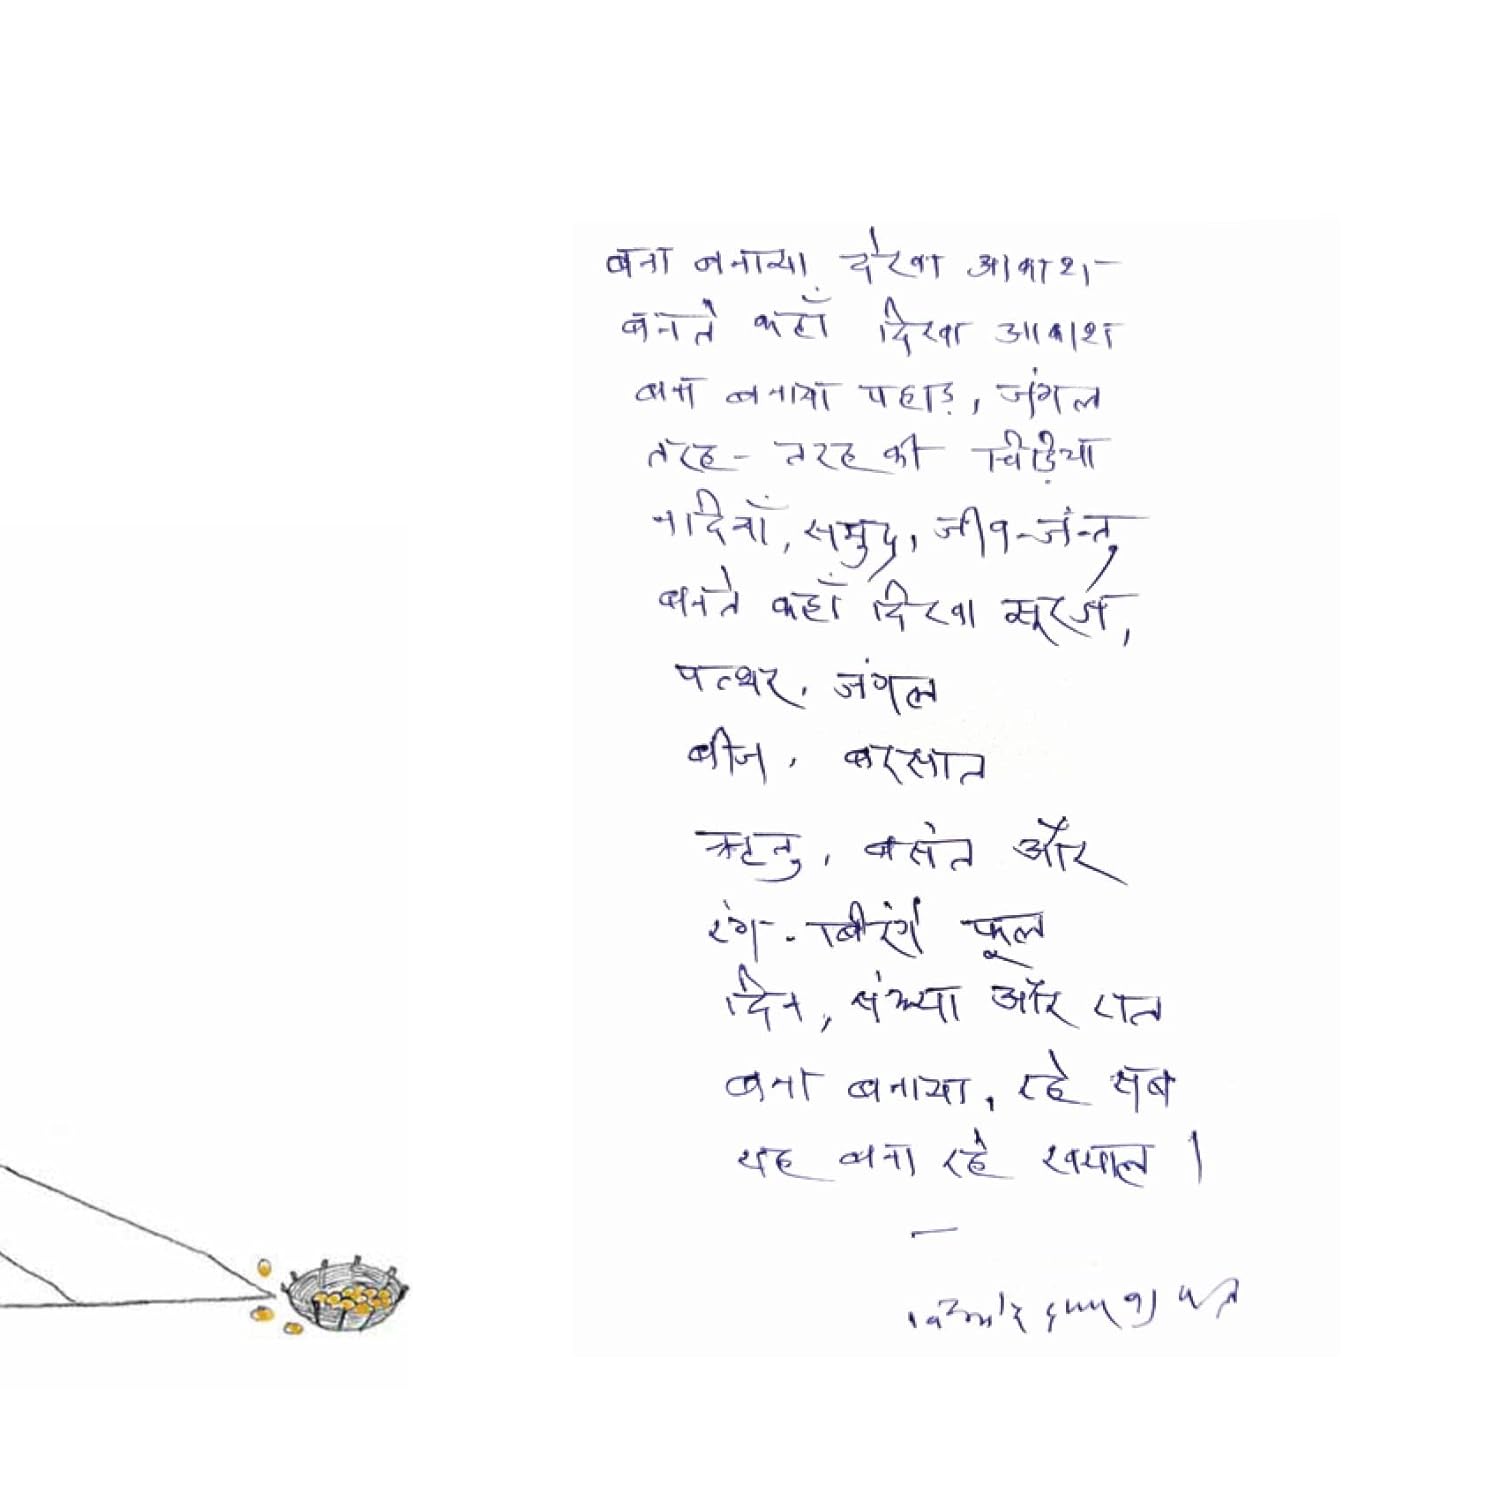 बना बनाया देखा आकाश
बनते कहाँ दिखा आकाश
बना बनाया पहाड़, जंगल
तरह-तरह की चिड़िया
नदियाँ, समुद्र, जीव-जन्तु
बनते कहाँ दिखा सूरज,
पत्थर, जंगल
बीज, बरसात
ऋतु, बसंत और
रंग-बिरंगे फूल
दिन, संध्या और रात
बना बनाया, रहे सब
यह बना रहे ख्याल ।